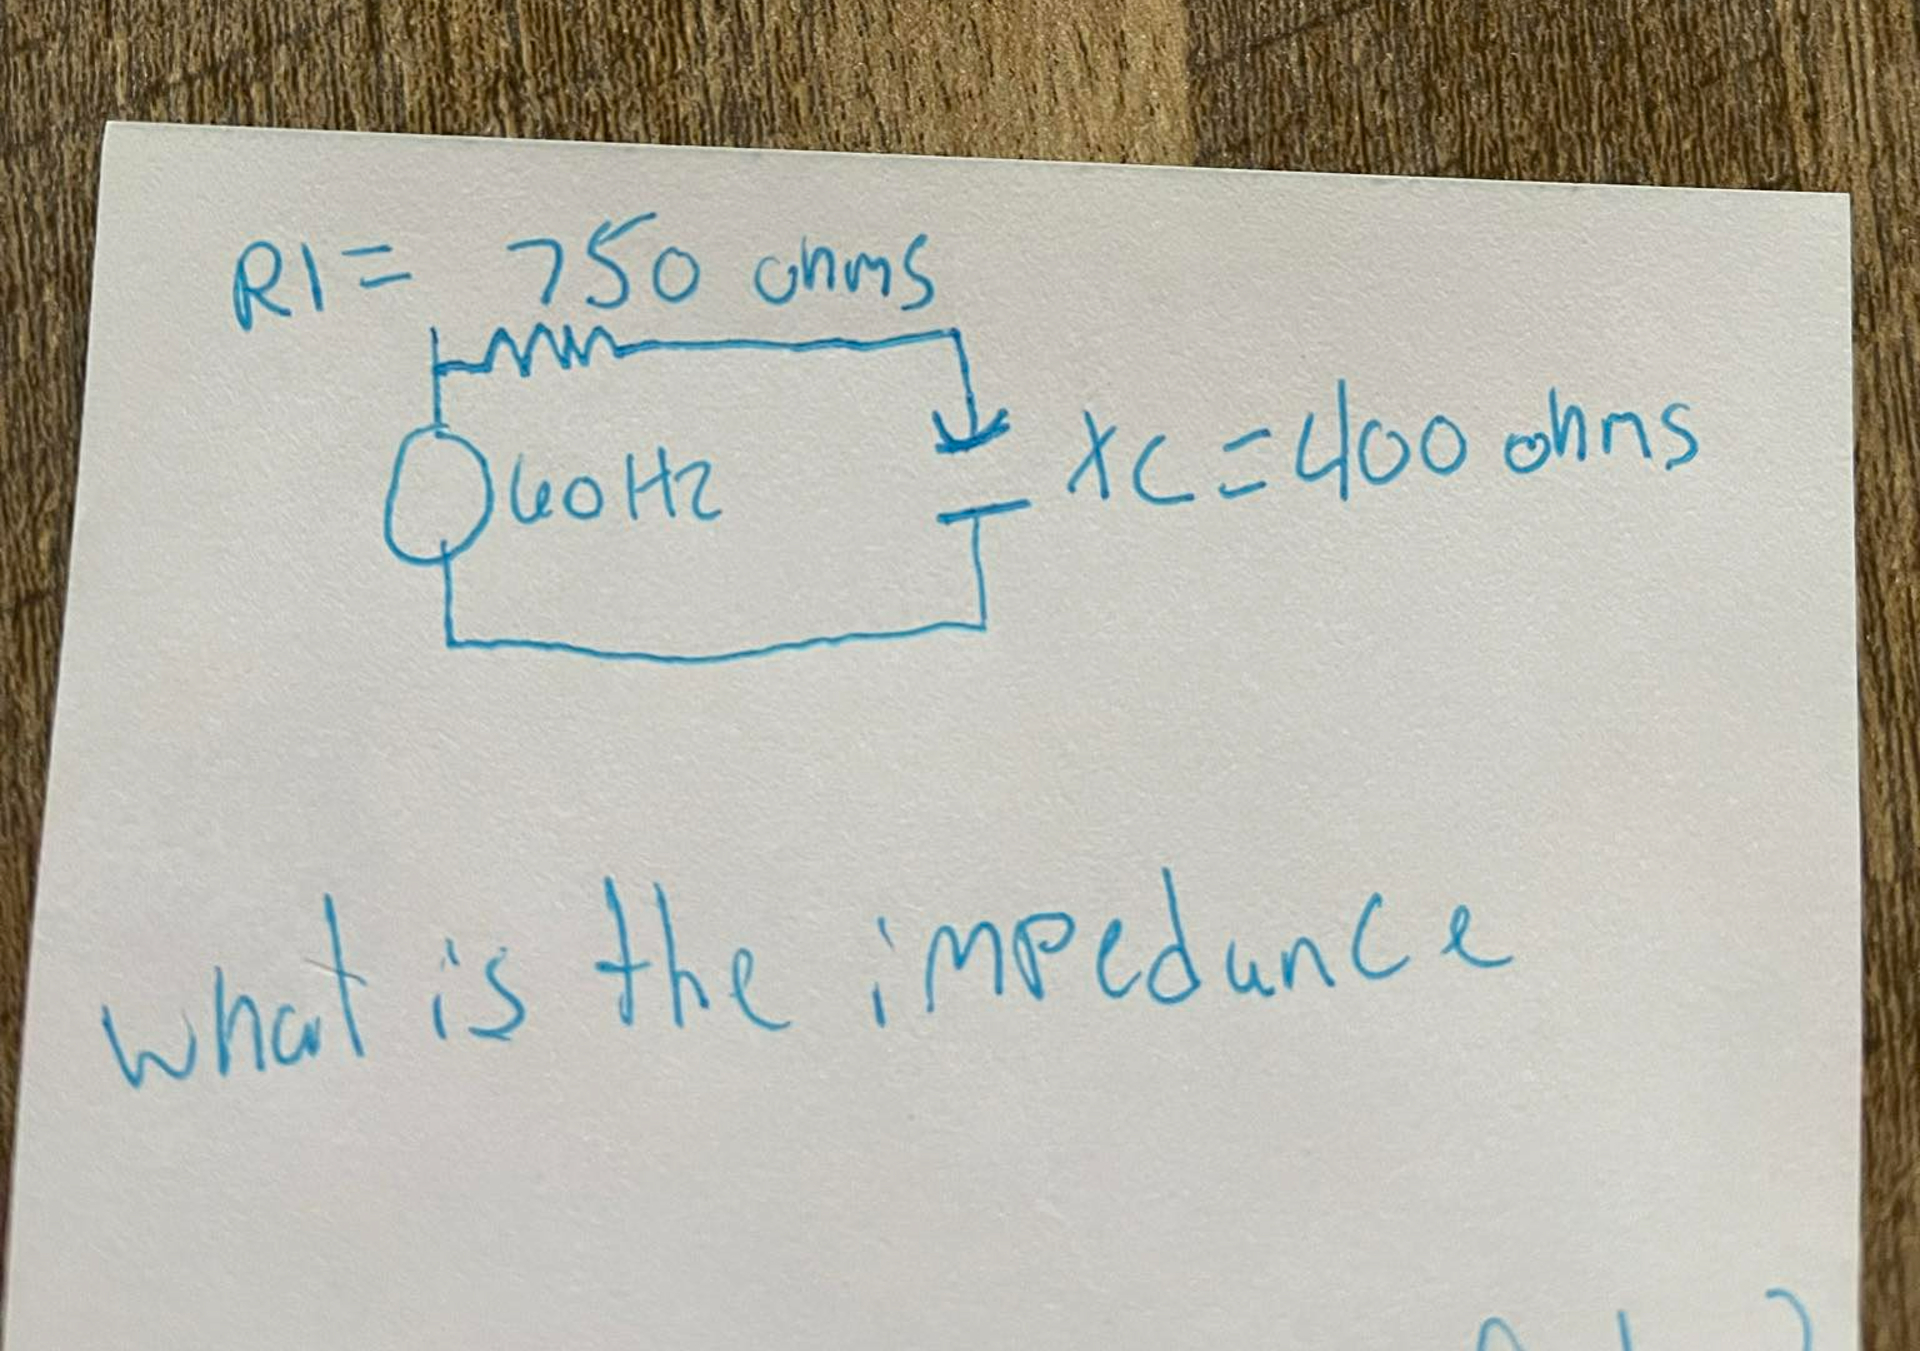 R1= 750 ohms
60Hz
XC=400 ohms
what is the impedance